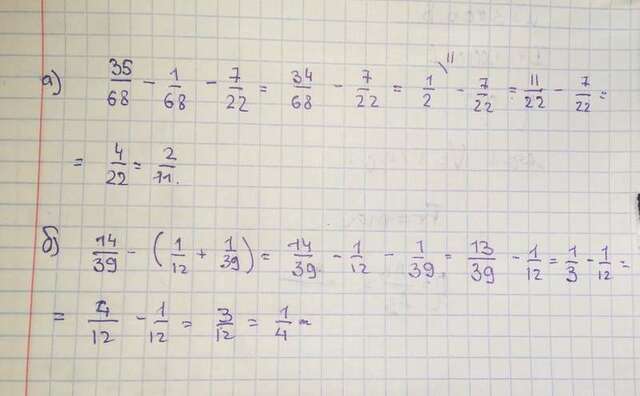 а) 35/68 - 1/68 - 7/22 = 34/68 - 7/22 = 1/2 ^11 - 7/22 = 11/22 - 7/22 =
= 4/22 = 2/11.
б) 14/39 - (1/12 + 1/39) = 14/39 - 1/12 - 1/39 = 13/39 - 1/12 = 1/3 - 1/12 =
= 4/12 - 1/12 = 3/12 = 1/4